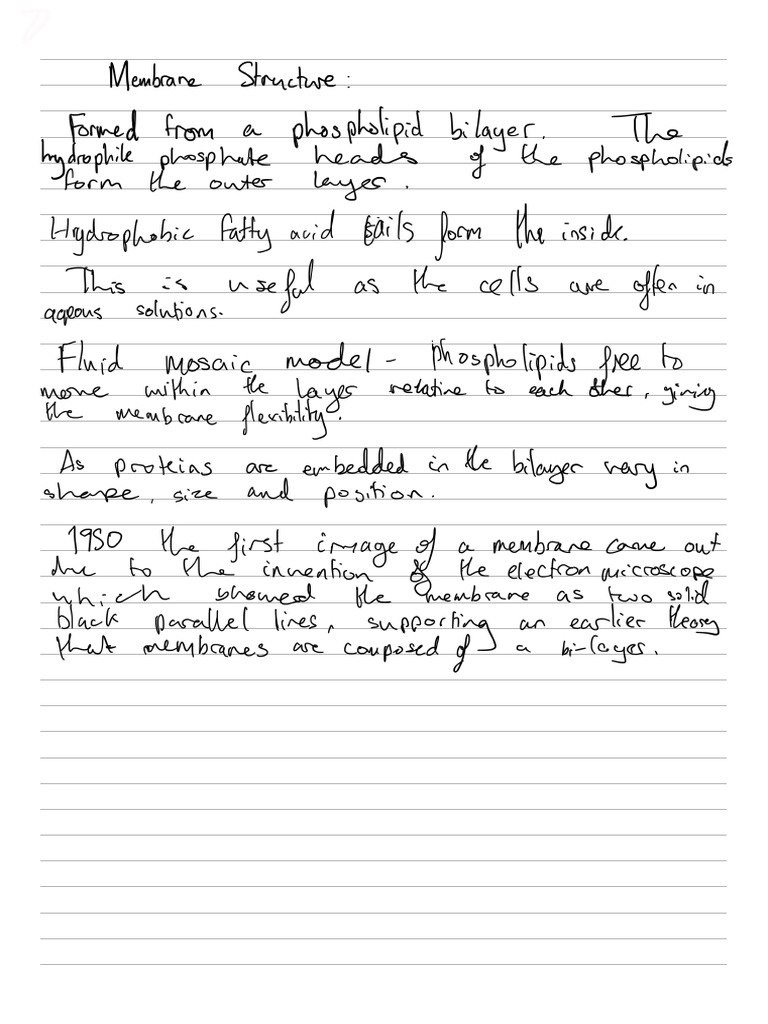 Membrane Structure:
Formed from a phospholipid bilayer. The
hydrophile phosphate heads of the phospholipids
form the outer layer.
Hydrophobic fatty acid tails form the inside.
This is useful as the cells are often in
aqeous solutions.
Fluid mosaic model - phospholipids free to
move within the layer relative to each other, giving
the membrane flexibility.
As proteins are embedded in the bilayer vary in
shape, size and position.
1950 the first image of a membrane came out
due to the invention of the electron microscope
which showed the membrane as two solid
black parallel lines, supporting an earlier theory
that membranes are composed of a bi-layer.